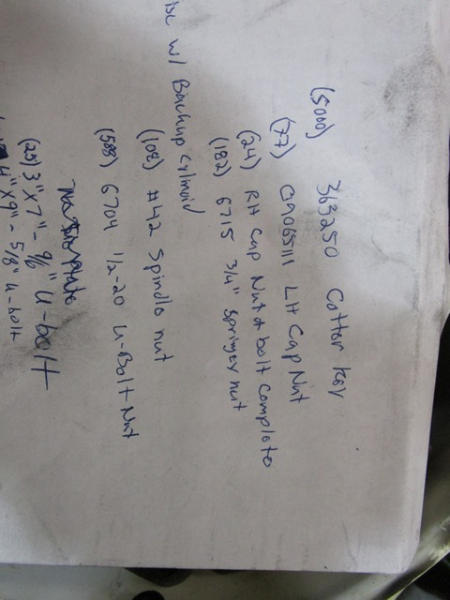 (5000) 363250 Cotter Key
(77) 09065111 LH Cap Nut
(24) RH Cap Nut & bolt complete
(182) 6715 3/4" Springer nut
w/ Backup
(108) #42 Spindle nut
(588) 6704 1/2-20 U-Bolt Nut
(20) 3" x 7" - 9/16" U-bolt
x 9" - 5/8" U-bolt